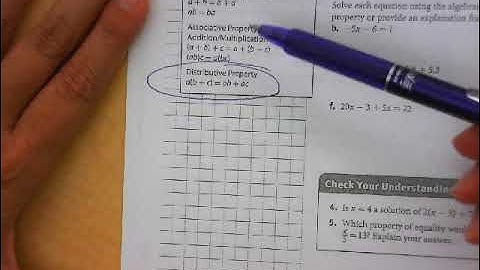 a + b = b + a
ab = ba
Associative Property
Addition/Multiplication
(a + b) + c = a + (b + c)
(ab)c = a(bc)
Distributive Property
a(b + c) = ab + ac
Solve each equation using the algebraic
property or provide an explanation
b. −5x − 6 = 1
5.3
f. 20x − 3 + 5x = 22
Check Your Understanding
4. Is x = 4 a solution of 2(x − 3)
5. Which property of equality would
= 13? Explain your answer.